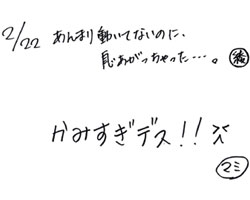 2/22 あんまり動いてないのに、
息あがっちゃった…。
かみすぎデス!!
マミ